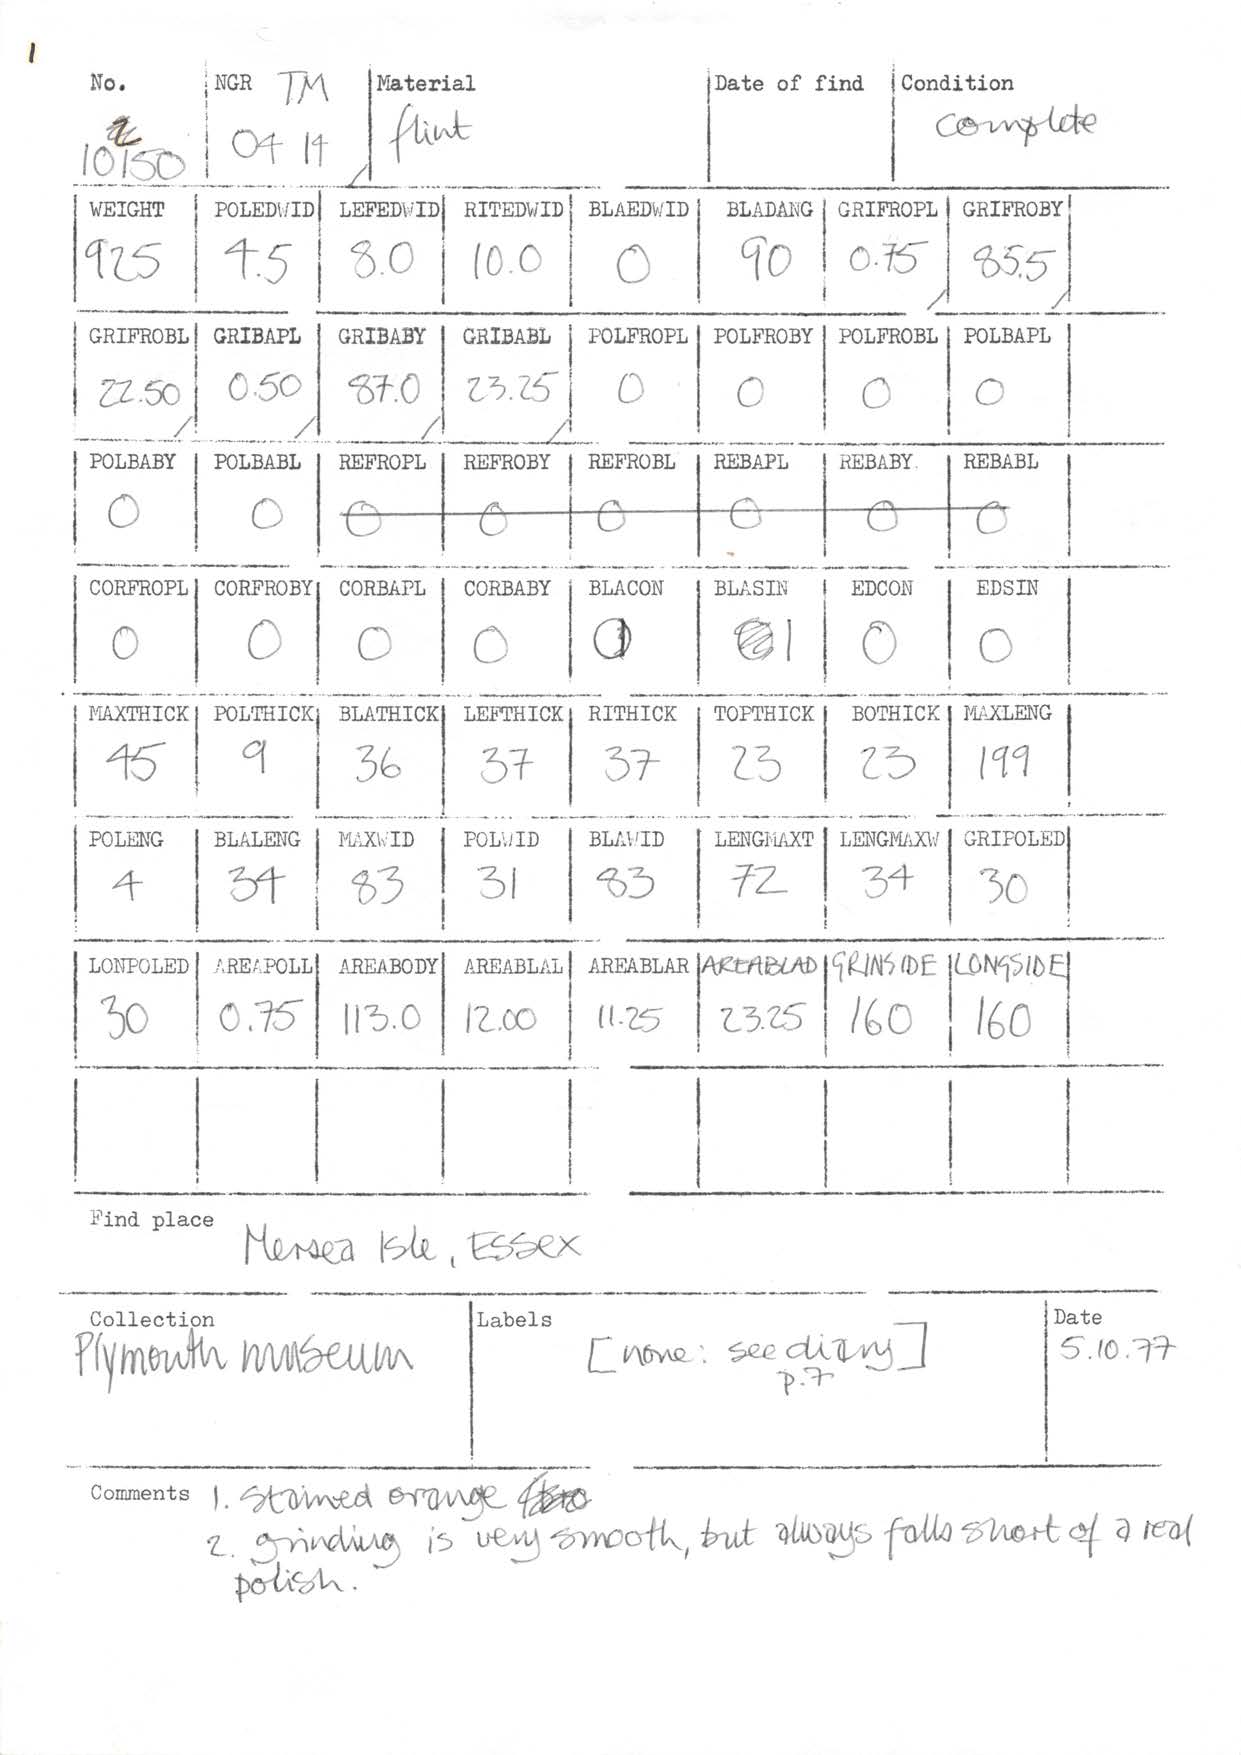 1
No. NGR TM Material Date of find Condition
10150 04 14 flint complete
WEIGHT POLEDWID LEFEDWID RITEDWID BLAEDWID BLADANG GRIFROPL GRIFROBY
925 4.5 8.0 10.0 0 90 0.75 85.5
GRIFROBL GRIBAPL GRIBABY GRIBABL POLFROPL POLFROBY POLFROBL POLBAPL
22.50 0.50 87.0 23.25 0 0 0 0
POLBABY POLBABL REFROPL REFROBY REFROBL REBAPL REBABY REBABL
0 0 0 0 0 0 0 0
CORFROPL CORFROBY CORBAPL CORBABY BLACON BLASIN EDCON EDSIN
0 0 0 0 0 1 0 0
MAXTHICK POLTHICK BLATHICK LEFTHICK RITHICK TOPTHICK BOTHICK MAXLENG
45 9 36 37 37 23 23 199
POLENG BLALENG MAXWID POLWID BLAWID LENGMAXT LENGMAXW GRIPOLED
4 34 83 31 83 72 34 30
LONPOLED AREAPOLL AREABODY AREABLAL AREABLAR AREABLAD GRINSIDE LONGSIDE
30 0.75 113.0 12.00 11.25 23.25 160 160
Find place
Mersea Isle, Essex
Collection Labels Date
Plymouth museum [none: see diary] 5.10.77
p.7
Comments 1. Stained orange
2. grinding is very smooth, but always falls short of a real
polish.